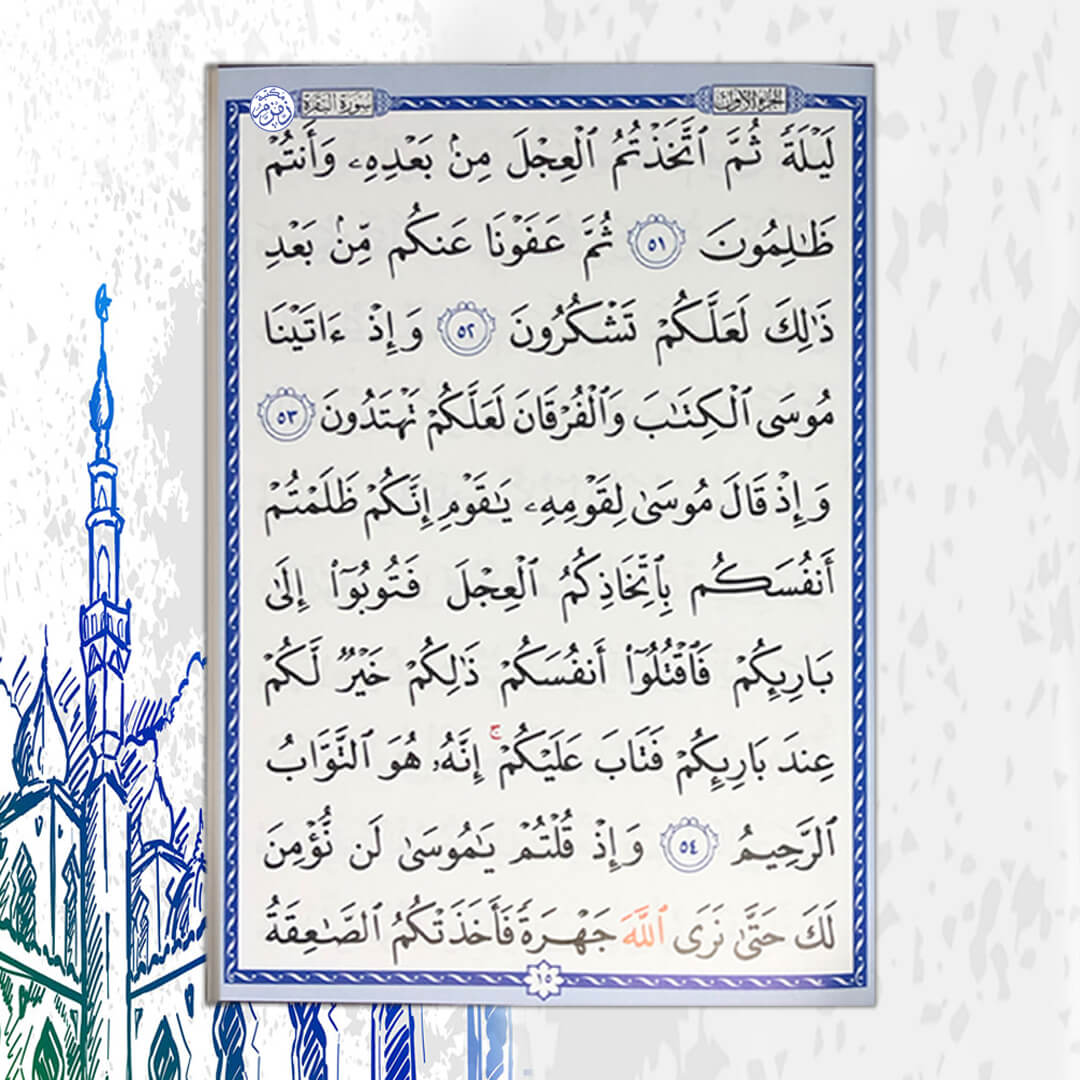 الجزء الأول
سورة البقرة
مكتبة
زمزم
لَيْلَةً ثُمَّ ٱتَّخَذْتُمُ ٱلْعِجْلَ مِنۢ بَعْدِهِۦ وَأَنتُمْ
ظَٰلِمُونَ ٥١ ثُمَّ عَفَوْنَا عَنكُم مِّنۢ بَعْدِ
ذَٰلِكَ لَعَلَّكُمْ تَشْكُرُونَ ٥٢ وَإِذْ ءَاتَيْنَا
مُوسَى ٱلْكِتَٰبَ وَٱلْفُرْقَانَ لَعَلَّكُمْ تَهْتَدُونَ ٥٣
وَإِذْ قَالَ مُوسَىٰ لِقَوْمِهِۦ يَٰقَوْمِ إِنَّكُمْ ظَلَمْتُمْ
أَنفُسَكُم بِٱتِّخَاذِكُمُ ٱلْعِجْلَ فَتُوبُوٓا۟ إِلَىٰ
بَارِئِكُمْ فَٱقْتُلُوٓا۟ أَنفُسَكُمْ ذَٰلِكُمْ خَيْرٌ لَّكُمْ
عِندَ بَارِئِكُمْ فَتَابَ عَلَيْكُمْ ۚ إِنَّهُۥ هُوَ ٱلتَّوَّابُ
ٱلرَّحِيمُ ٥٤ وَإِذْ قُلْتُمْ يَٰمُوسَىٰ لَن نُّؤْمِنَ
لَكَ حَتَّىٰ نَرَى ٱللَّهَ جَهْرَةً فَأَخَذَتْكُمُ ٱلصَّٰعِقَةُ
١٥